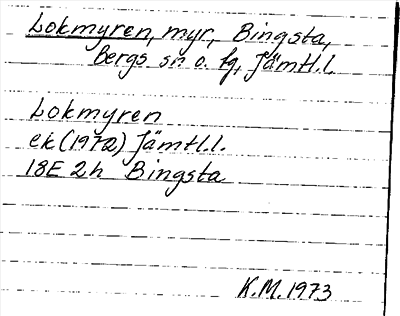 Lokmyren, myr, Bingsta,
Bergs sn o. fg, Jämtl.l.
Lokmyren
ek (1972) Jämtl.l.
18E 2h Bingsta
K.M. 1973